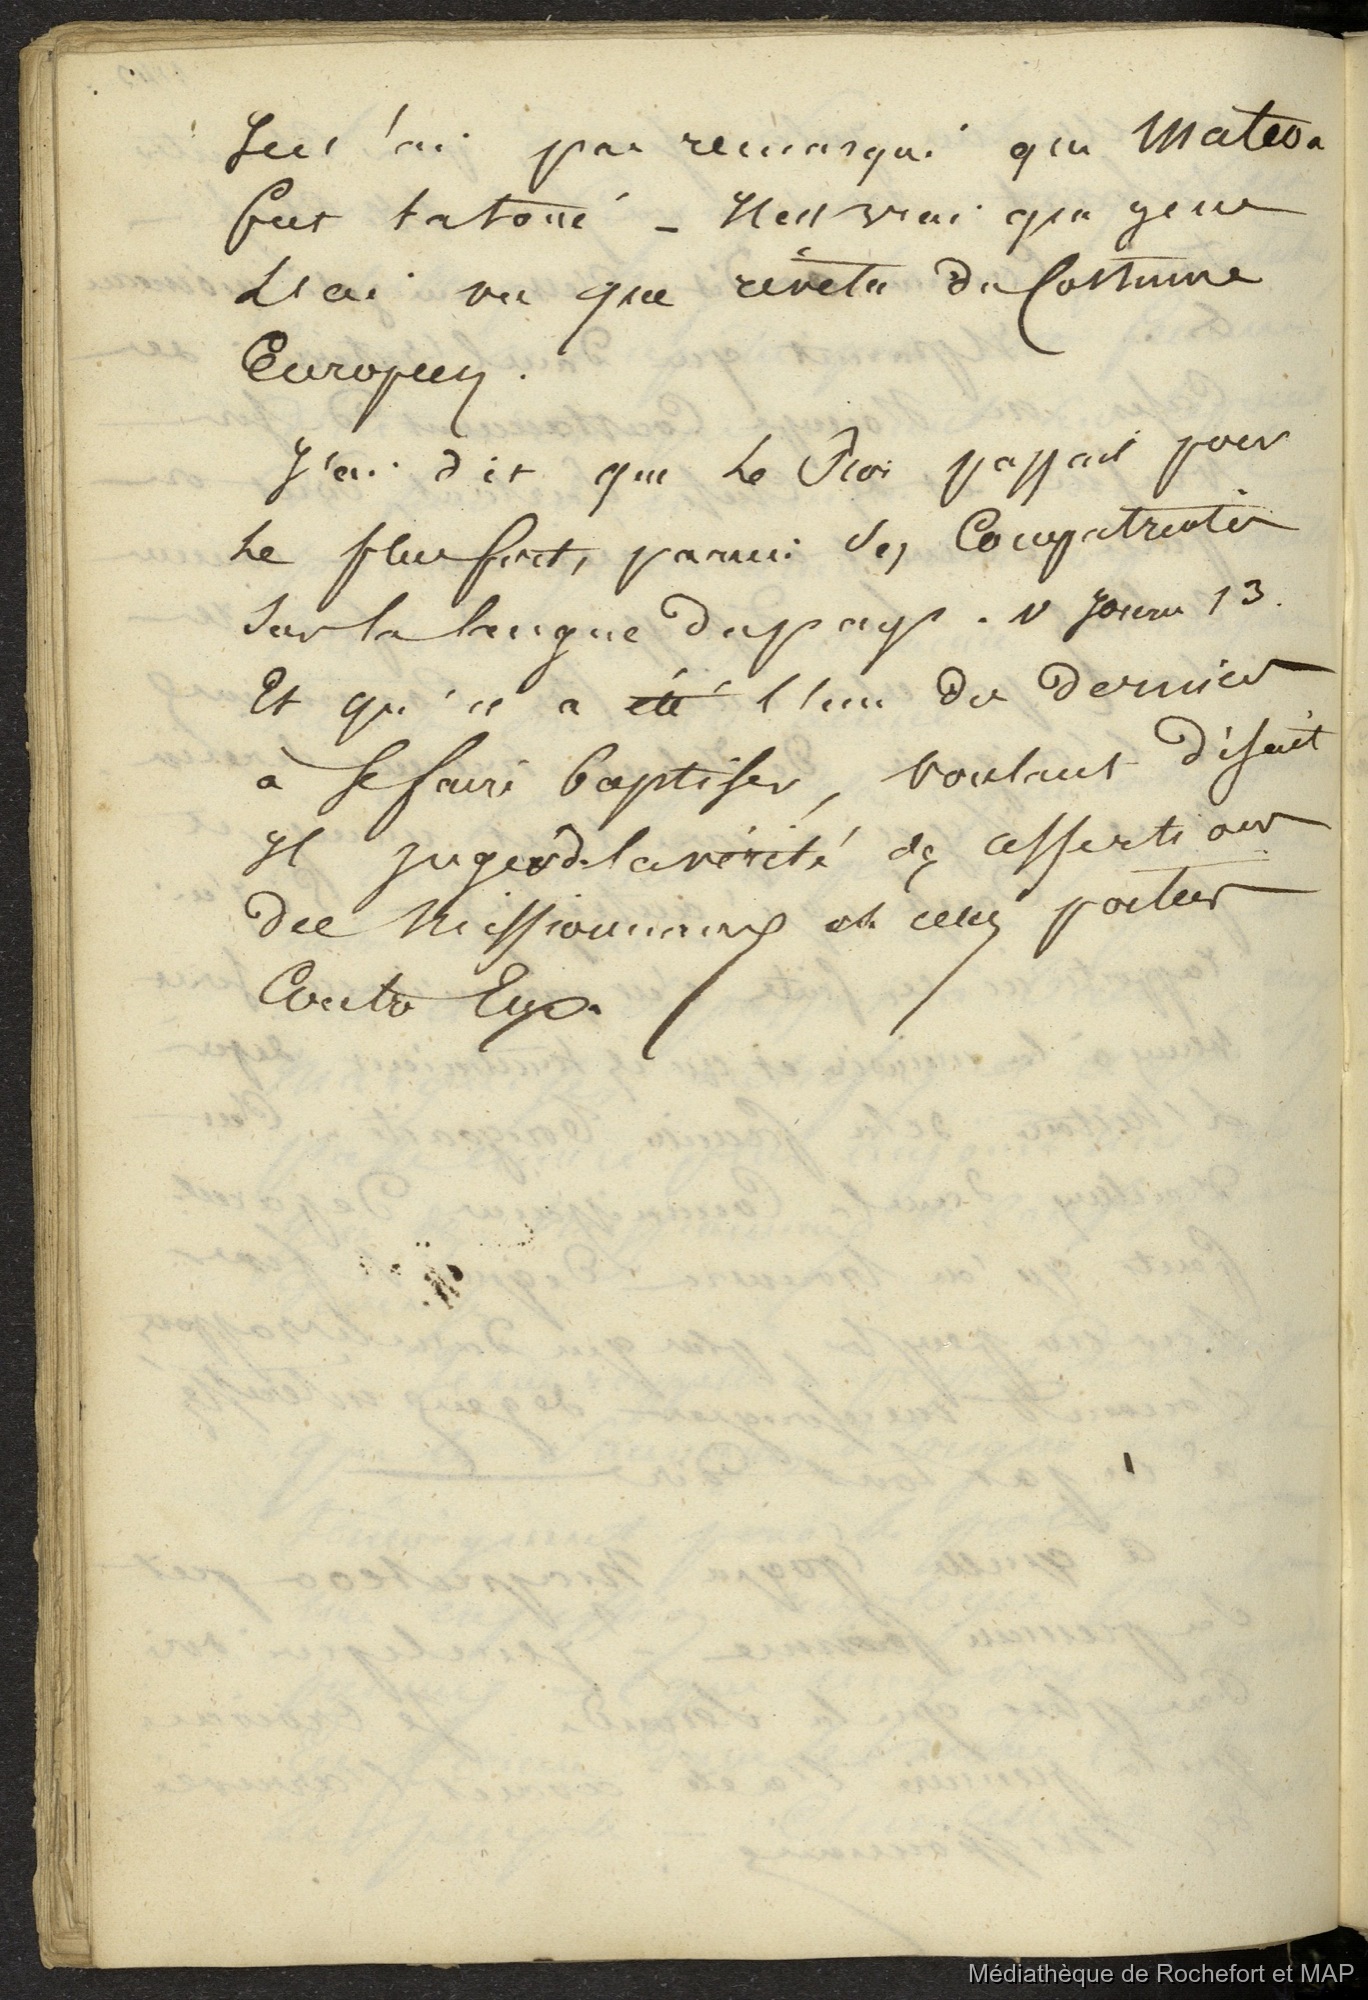 Je n'ai pas remarqué que Mateoa
fut tatoué – Il est vrai que je ne
l'ai vu que revêtu du Costume
Européen.
J'ai dit que le Roi passait pour
le plus fort, parmi ses Compatriotes
Sur la langue du pays. v Journ 13.
Et qu'il a été l'un des derniers
à se faire baptiser, voulant disait
Il juger de la vérité des assertions
des Missionnaires et celles portées
Contre Eux.
Médiathèque de Rochefort et MAP